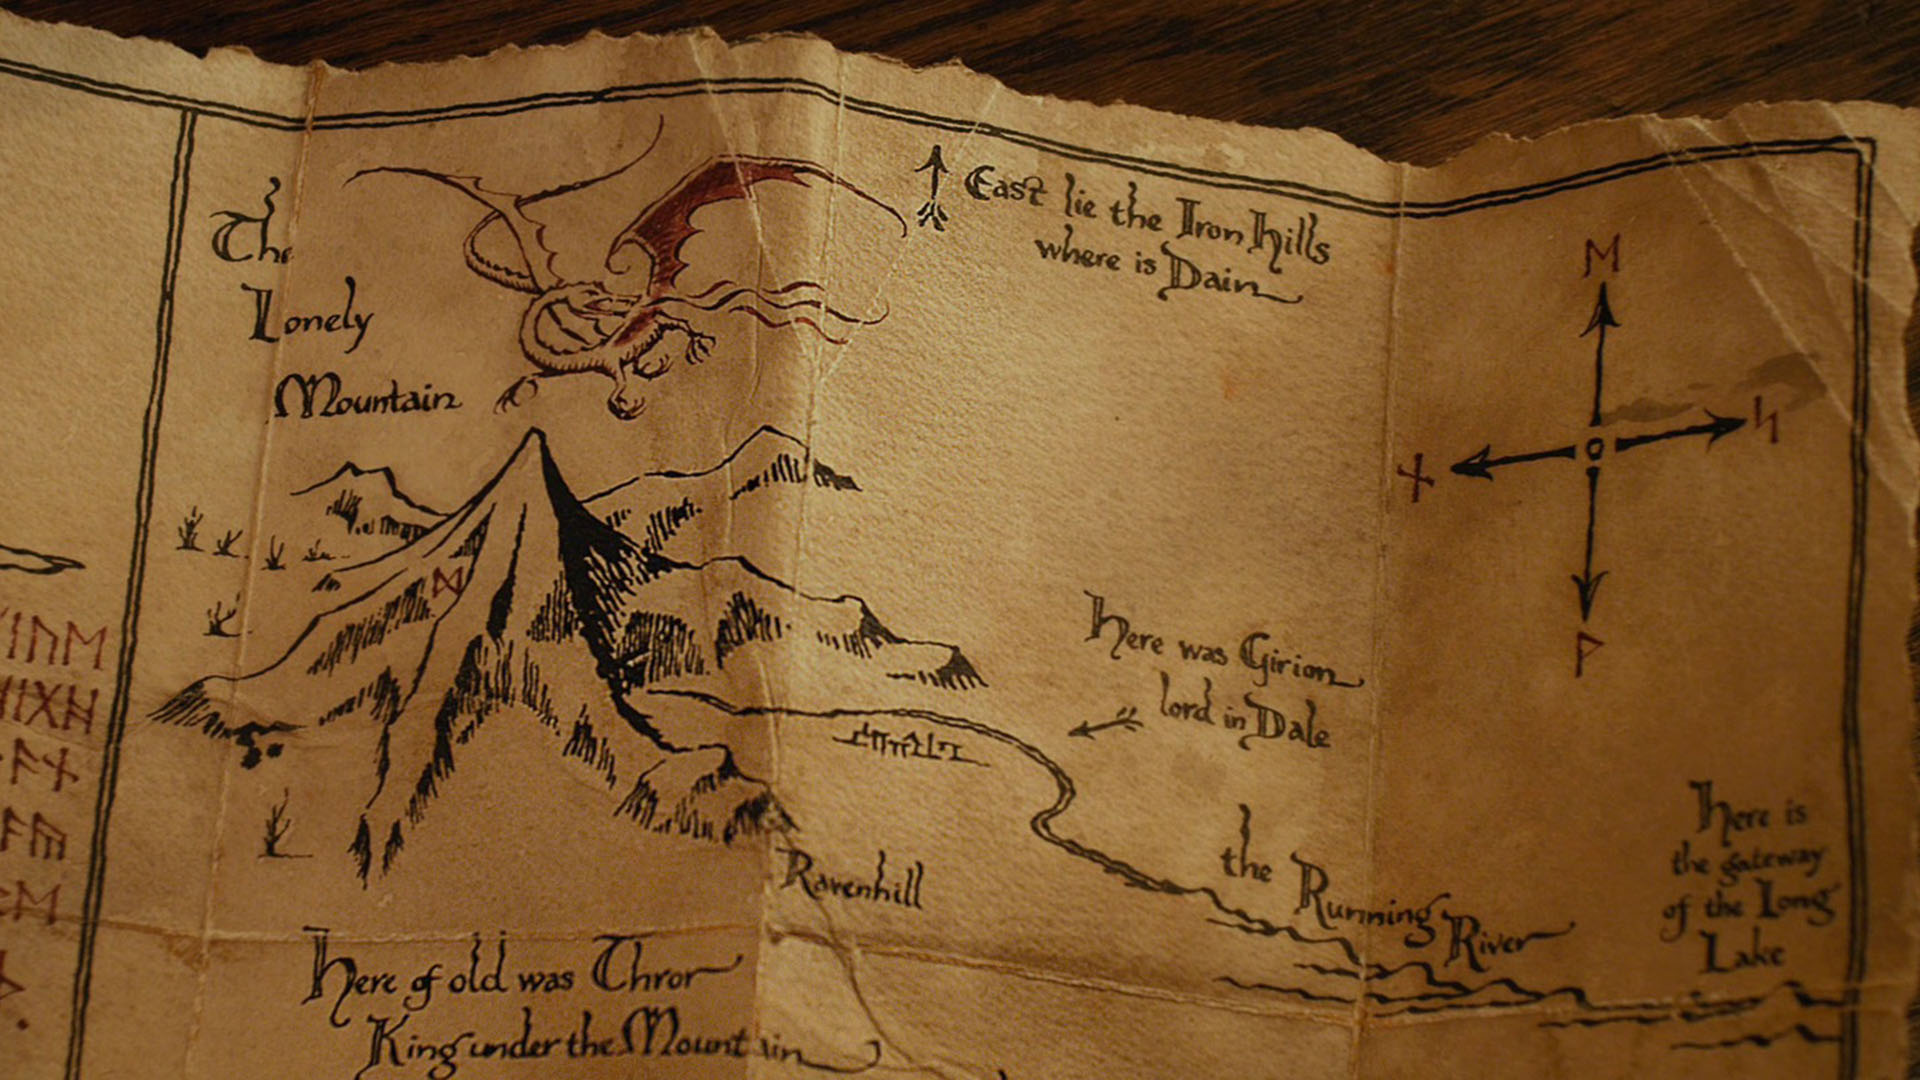 The
Lonely
Mountain
East lie the Iron Hills
where is Dain
ᛖ
ᚾ
ᛋ
ᚹ
ᛞ
Here was Girion
lord in Dale
the Running
River
Here is
the gateway
of the Long
Lake
Ravenhill
Here of old was Thror
King under the Mountain